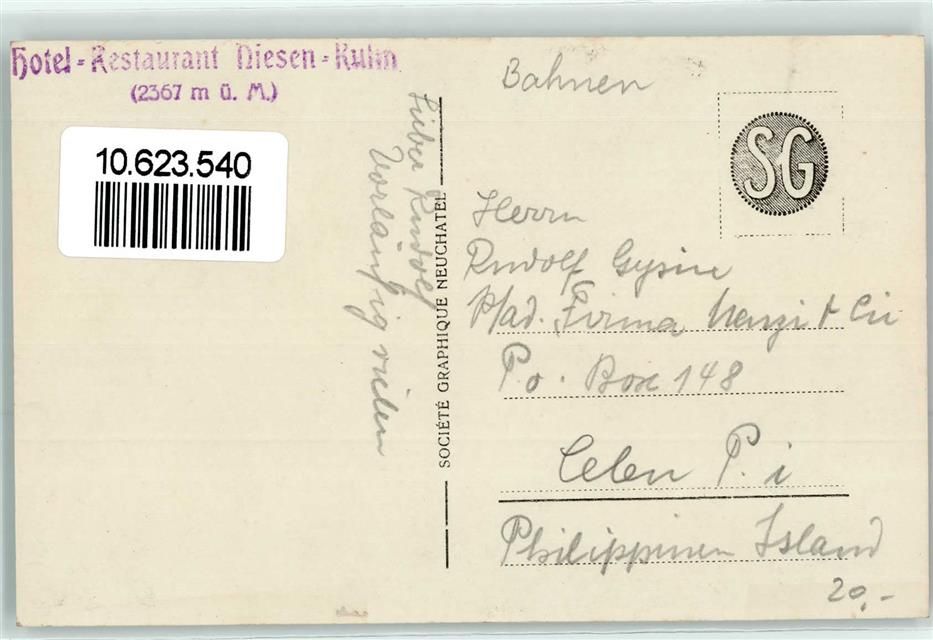 Hotel-Restaurant Niesen-Kulm
(2367 m ü. M.)
10.623.540
Lieber Rudolf
Vorläufig vielen
SOCIÉTÉ GRAPHIQUE NEUCHATEL
Bahnen
SG
Herrn
Rudolf Gysin
P/ad. Firma Menzi & Cie
P.o. Box 148
Cebu P. i
Philippinen Island
20,-